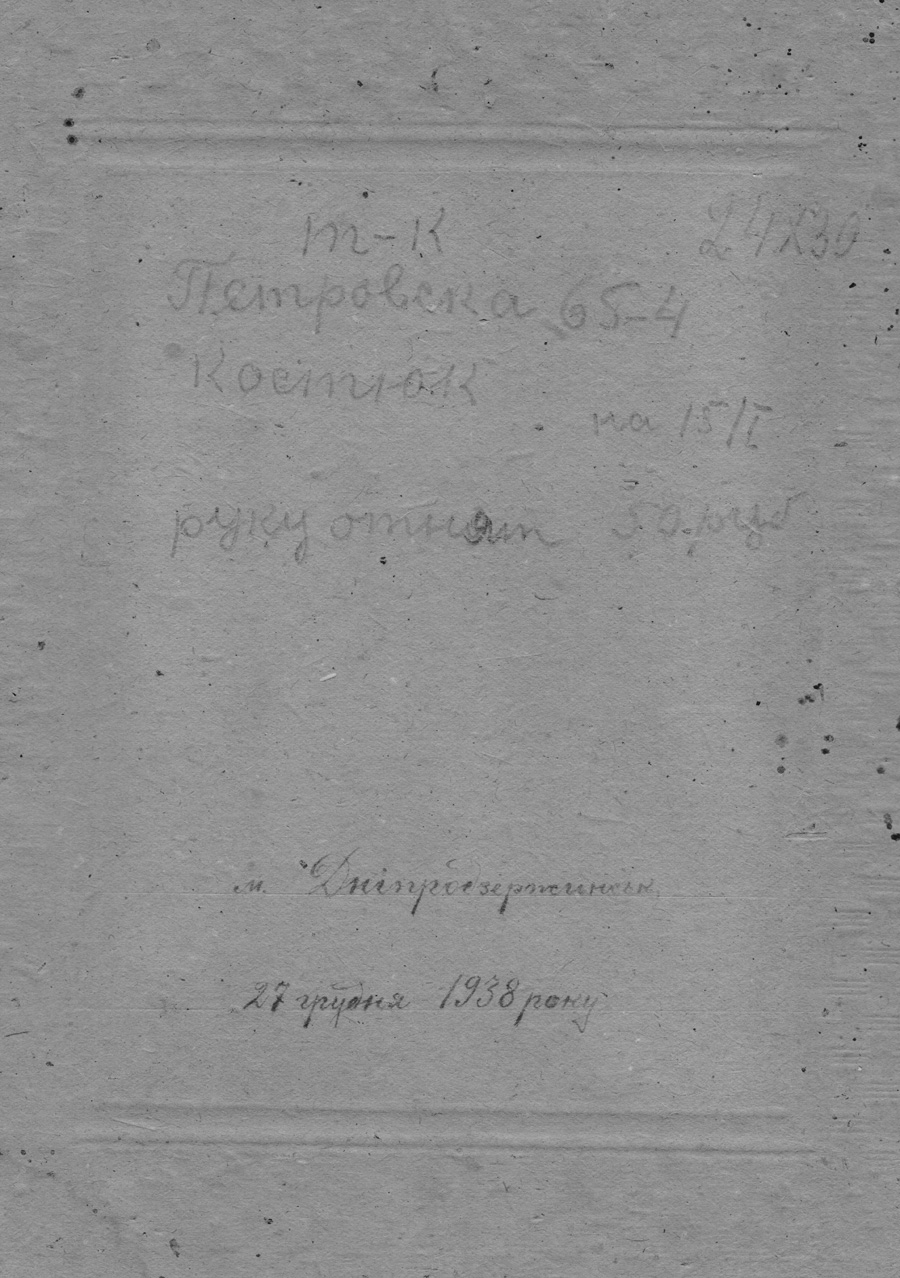 т-к 24х30
Петровска 65-4
Костюк
на 15/I
руку отнят 50 руб
м. Дніпродзержинськ
27 грудня 1938 року